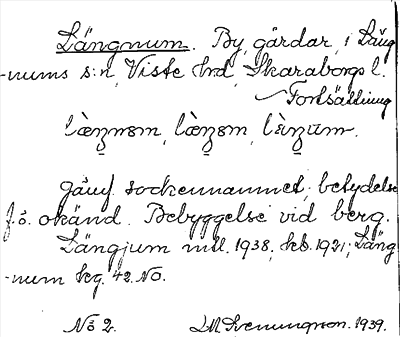 Längnum. By, gårdar, i Läng
-nums s:n, Viste hrd, Skaraborgs l.
Fortsättning
jämf. sockennamnet; betydelse
f.ö. okänd. Bebyggelse vid berg.
Längjum mtl. 1938, kb. 1921; Läng
-num kg. 42. NO.
No 2. 1939.